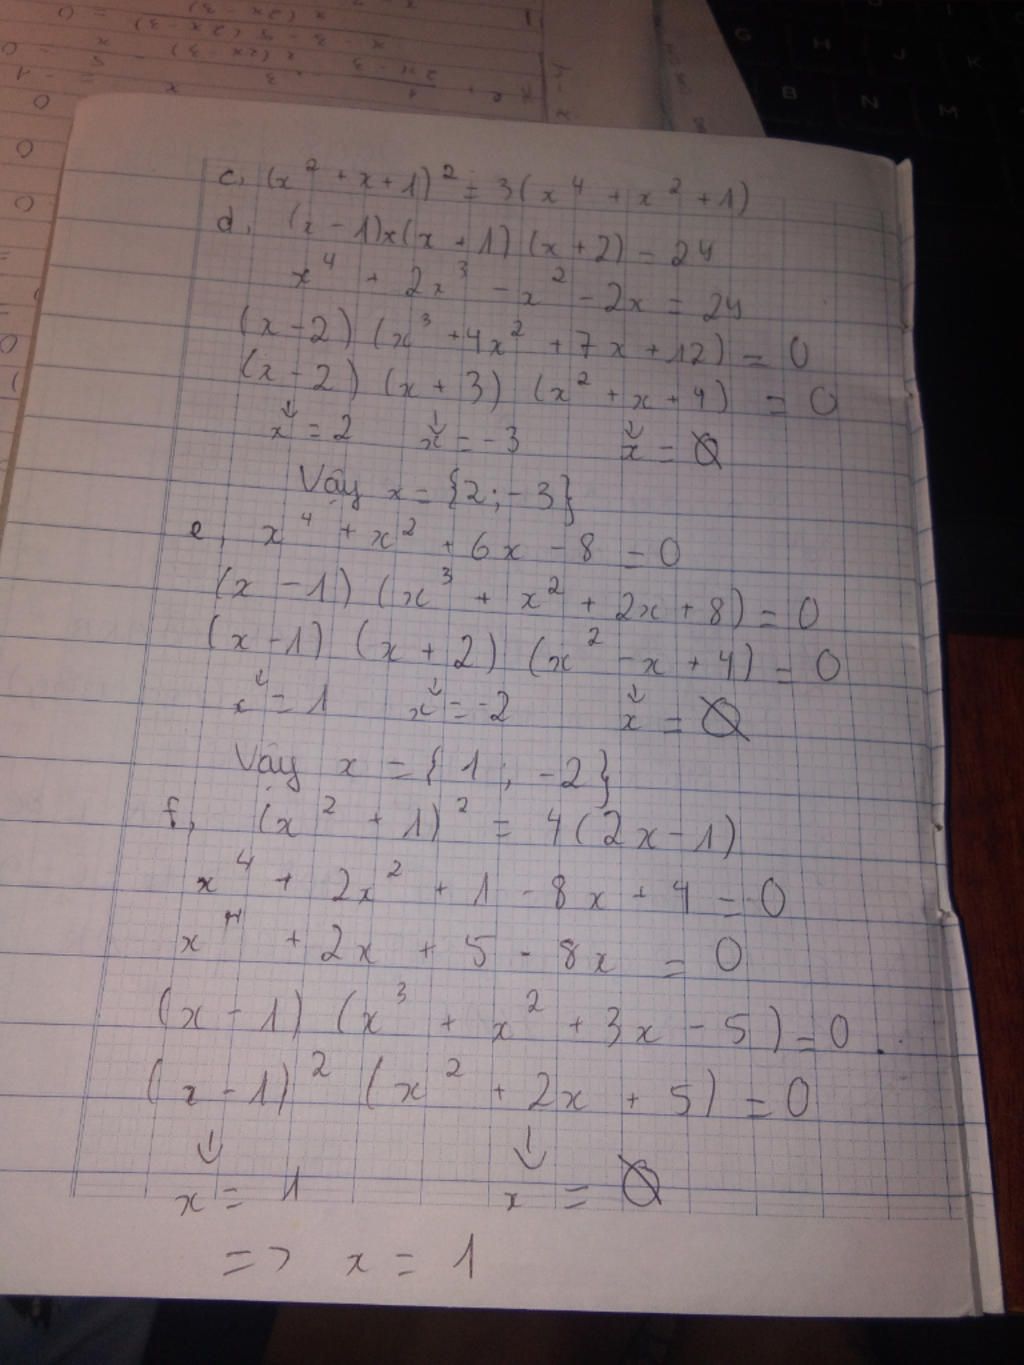 c, (x² + x + 1)² = 3(x⁴ + x² + 1)
d, (x - 1)x(x + 1)(x + 2) = 24
x⁴ + 2x³ - x² - 2x = 24
(x - 2)(x³ + 4x² + 7x + 12) = 0
(x - 2)(x + 3)(x² + x + 4) = 0
↓ ↓ ↓
x = 2 x = -3 x = ∅
Vậy x = {2; -3}
e, x⁴ + x² + 6x - 8 = 0
(x - 1)(x³ + x² + 2x + 8) = 0
(x - 1)(x + 2)(x² - x + 4) = 0
↓ ↓ ↓
x = 1 x = -2 x = ∅
Vậy x = {1; -2}
f, (x² + 1)² = 4(2x - 1)
x⁴ + 2x² + 1 - 8x + 4 = 0
x⁴ + 2x + 5 - 8x = 0
(x - 1)(x³ + x² + 3x - 5) = 0
(x - 1)²(x² + 2x + 5) = 0
↓ ↓
x = 1 x = ∅
=> x = 1
G H J K
B N M